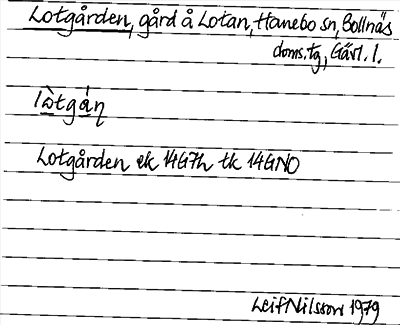 Lotgården, gård å Lotan, Hanebo sn, Bollnäs
doms.tg, Gävl. l.
lòtgáɳ
Lotgården ek 14G7h tk 14GNO
Leif Nilsson 1979